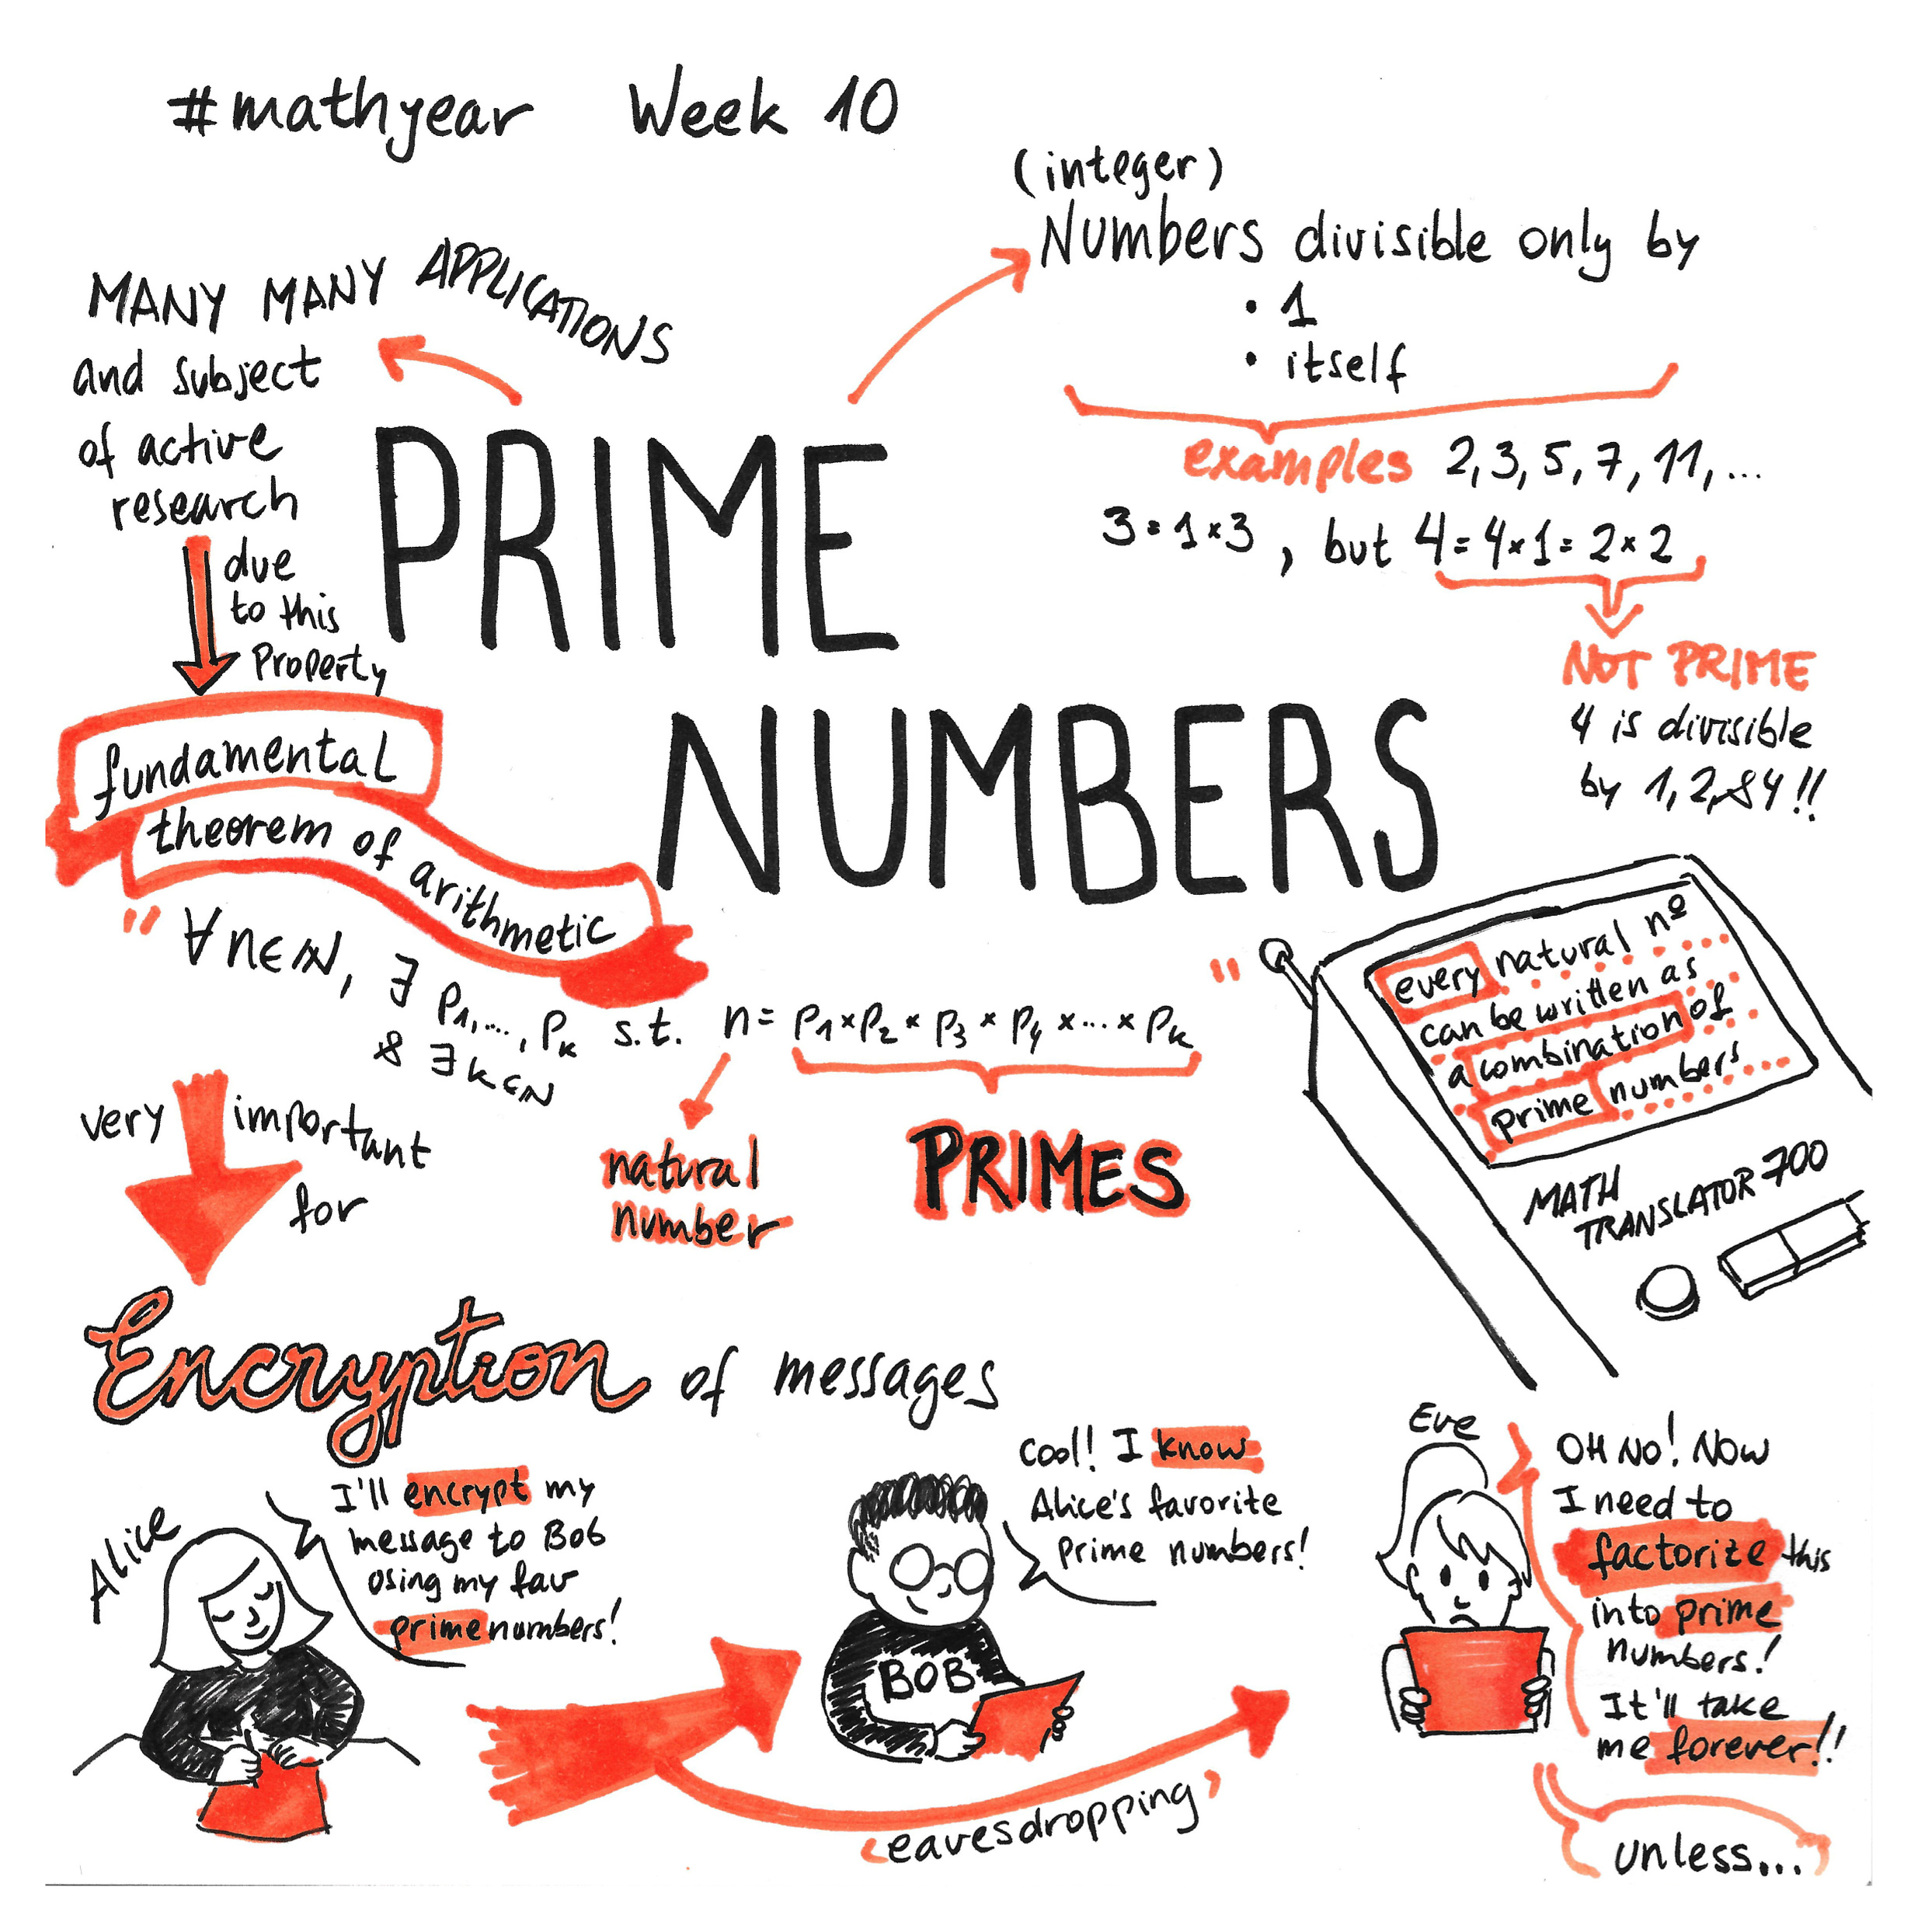 #mathyear Week 10
(integer)
Numbers divisible only by
• 1
• itself
examples 2, 3, 5, 7, 11, ...
3 = 1 × 3 , but 4 = 4 × 1 = 2 × 2
NOT PRIME
4 is divisible
by 1, 2, & 4 !!
MANY MANY APPLICATIONS
and subject
of active
research
due
to this
Property
PRIME
NUMBERS
fundamental
theorem of arithmetic
" ∀ n ∈ ℕ, ∃ p₁, ..., pₖ s.t. n = p₁ × p₂ × p₃ × p₄ × ... × pₖ "
& ∃ k ∈ ℕ
natural
number
PRIMES
every natural nº
can be written as
a combination of
prime numbers
MATH
TRANSLATOR 700
very important
for
Encryption of messages
Alice
I'll encrypt my
message to Bob
using my fav
prime numbers!
Cool! I know
Alice's favorite
prime numbers!
BOB
Eve
OH NO! Now
I need to
factorize this
into prime
numbers!
It'll take
me forever!!
'eavesdropping'
unless...